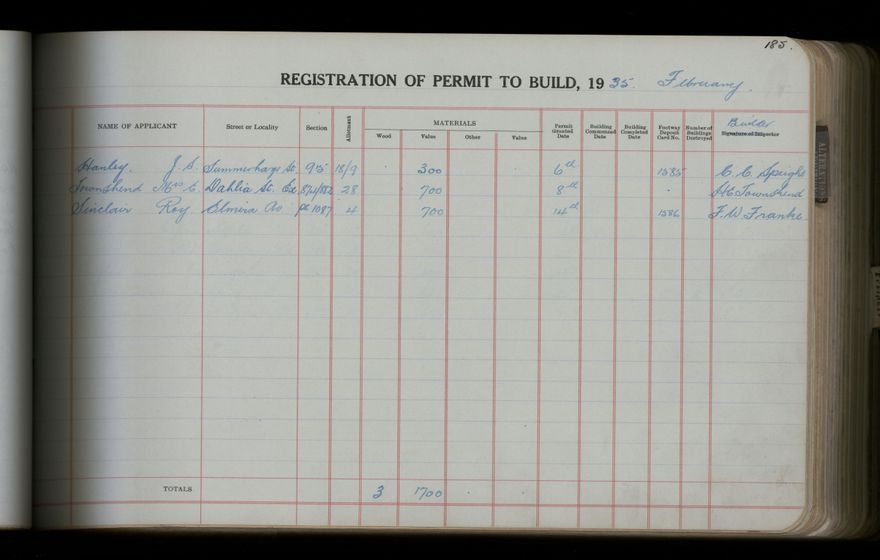 185.
REGISTRATION OF PERMIT TO BUILD, 1935. February.
NAME OF APPLICANT Street or Locality Section Allotment MATERIALS Wood Value Other Value Permit Granted Date Building Commenced Date Building Completed Date Footway Deposit Card No. Number of Buildings Destroyed Builder Signature of Inspector
Hanley. J. S. Summerhays St. 95 18/9 300 6th 1585 C. C. Speight
Townshend Mrs E. Dahlia St. 874/882 28 700 8th Townshend
Sinclair Roy Elmira Av pt 1087 4 700 14th 1586 F. W. Franke
TOTALS 3 1700